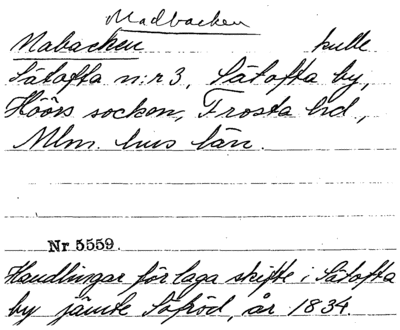 Madbacken
Mabacken kulle
Sätofta n:r 3, Sätofta by,
Höörs socken, Frosta hd,
Mlm. hus län.
Nr 5559.
Handlingar för laga skifte i Sätofta
by jämte Söröd, år 1834.